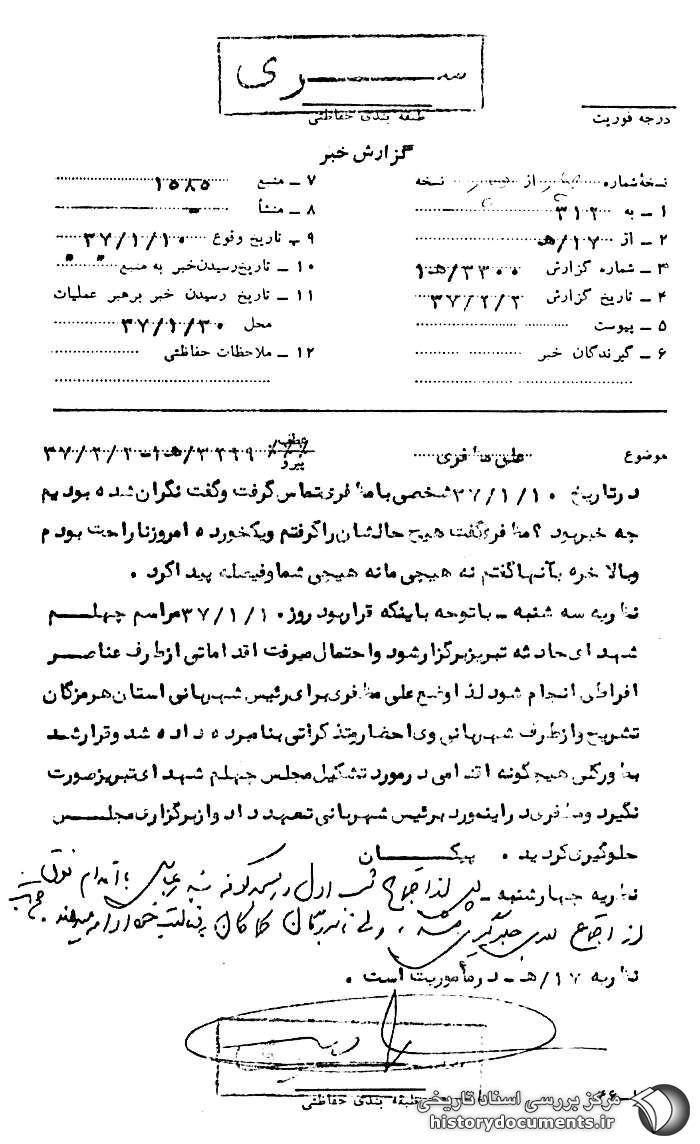 سری
طبقه بندی حفاظتی
درجه فوریت
گزارش خبر
نسخهٔ شماره از نسخه
۱ ـ به ۳۱۲
۲ ـ از ۱۷/هـ
۳ ـ شماره گزارش ۳۳۰۰/هـ۱
۴ ـ تاریخ گزارش ۳۷/۲/۲
۵ ـ پیوست
۶ ـ گیرندگان خبر
۷ ـ منبع ۱۵۸۵
۸ ـ منشأ ـ
۹ ـ تاریخ وقوع ۳۷/۱/۱۰
۱۰ ـ تاریخ رسیدن خبر به منبع " "
۱۱ ـ تاریخ رسیدن خبر برهبر عملیات
محل ۳۷/۱/۳۰
۱۲ ـ ملاحظات حفاظتی
موضوع علی مظفری عطف پیرو ۳۲۹۹/هـ۱ـ۳۷/۲/۲
درتاریخ ۳۷/۱/۱۰ شخصی با مظفری تماس گرفت وگفت نگران شده بودیم
چه خبر بود ؟ مظفری گفت هیچ حالشان را گرفتم ویکخورده امروز ناراحت بودم
وبالاخره بآنها گفتم نه هیچی ما نه هیچی شما وفیصله پیدا کرد .
نظریه سه شنبه ـ باتوجه باینکه قرار بود روز ۳۷/۱/۱۰ مراسم چهلم
شهدای حادثه تبریز برگزار شود واحتمال میرفت اقداماتی از طرف عناصر
افراطی انجام شود لذا وضع علی مظفری برای رئیس شهربانی استان هرمزگان
تشریح واز طرف شهربانی وی احضار وتذکراتی بنامبرده داده شد وقرار شد
بطورکلی هیچگونه اقدامی در مورد تشکیل مجلس چهلم شهدای تبریز صورت
نگیرد ومظفری در اینمورد برئیس شهربانی تعهد داد واز برگزاری مجلس
جلوگیری کردید . پیکان
نظریه چهارشنبه ـ اجتماع شب اول با اقدام فوق
از اجتماع بعدی جلوگیری شد ، ولی کماکان ادامه میدهند .
نظریه ۱۷/هـ ـ در مأموریت است .
طبقه بندی حفاظتی
مرکز بررسی اسناد تاریخی
historydocuments.ir